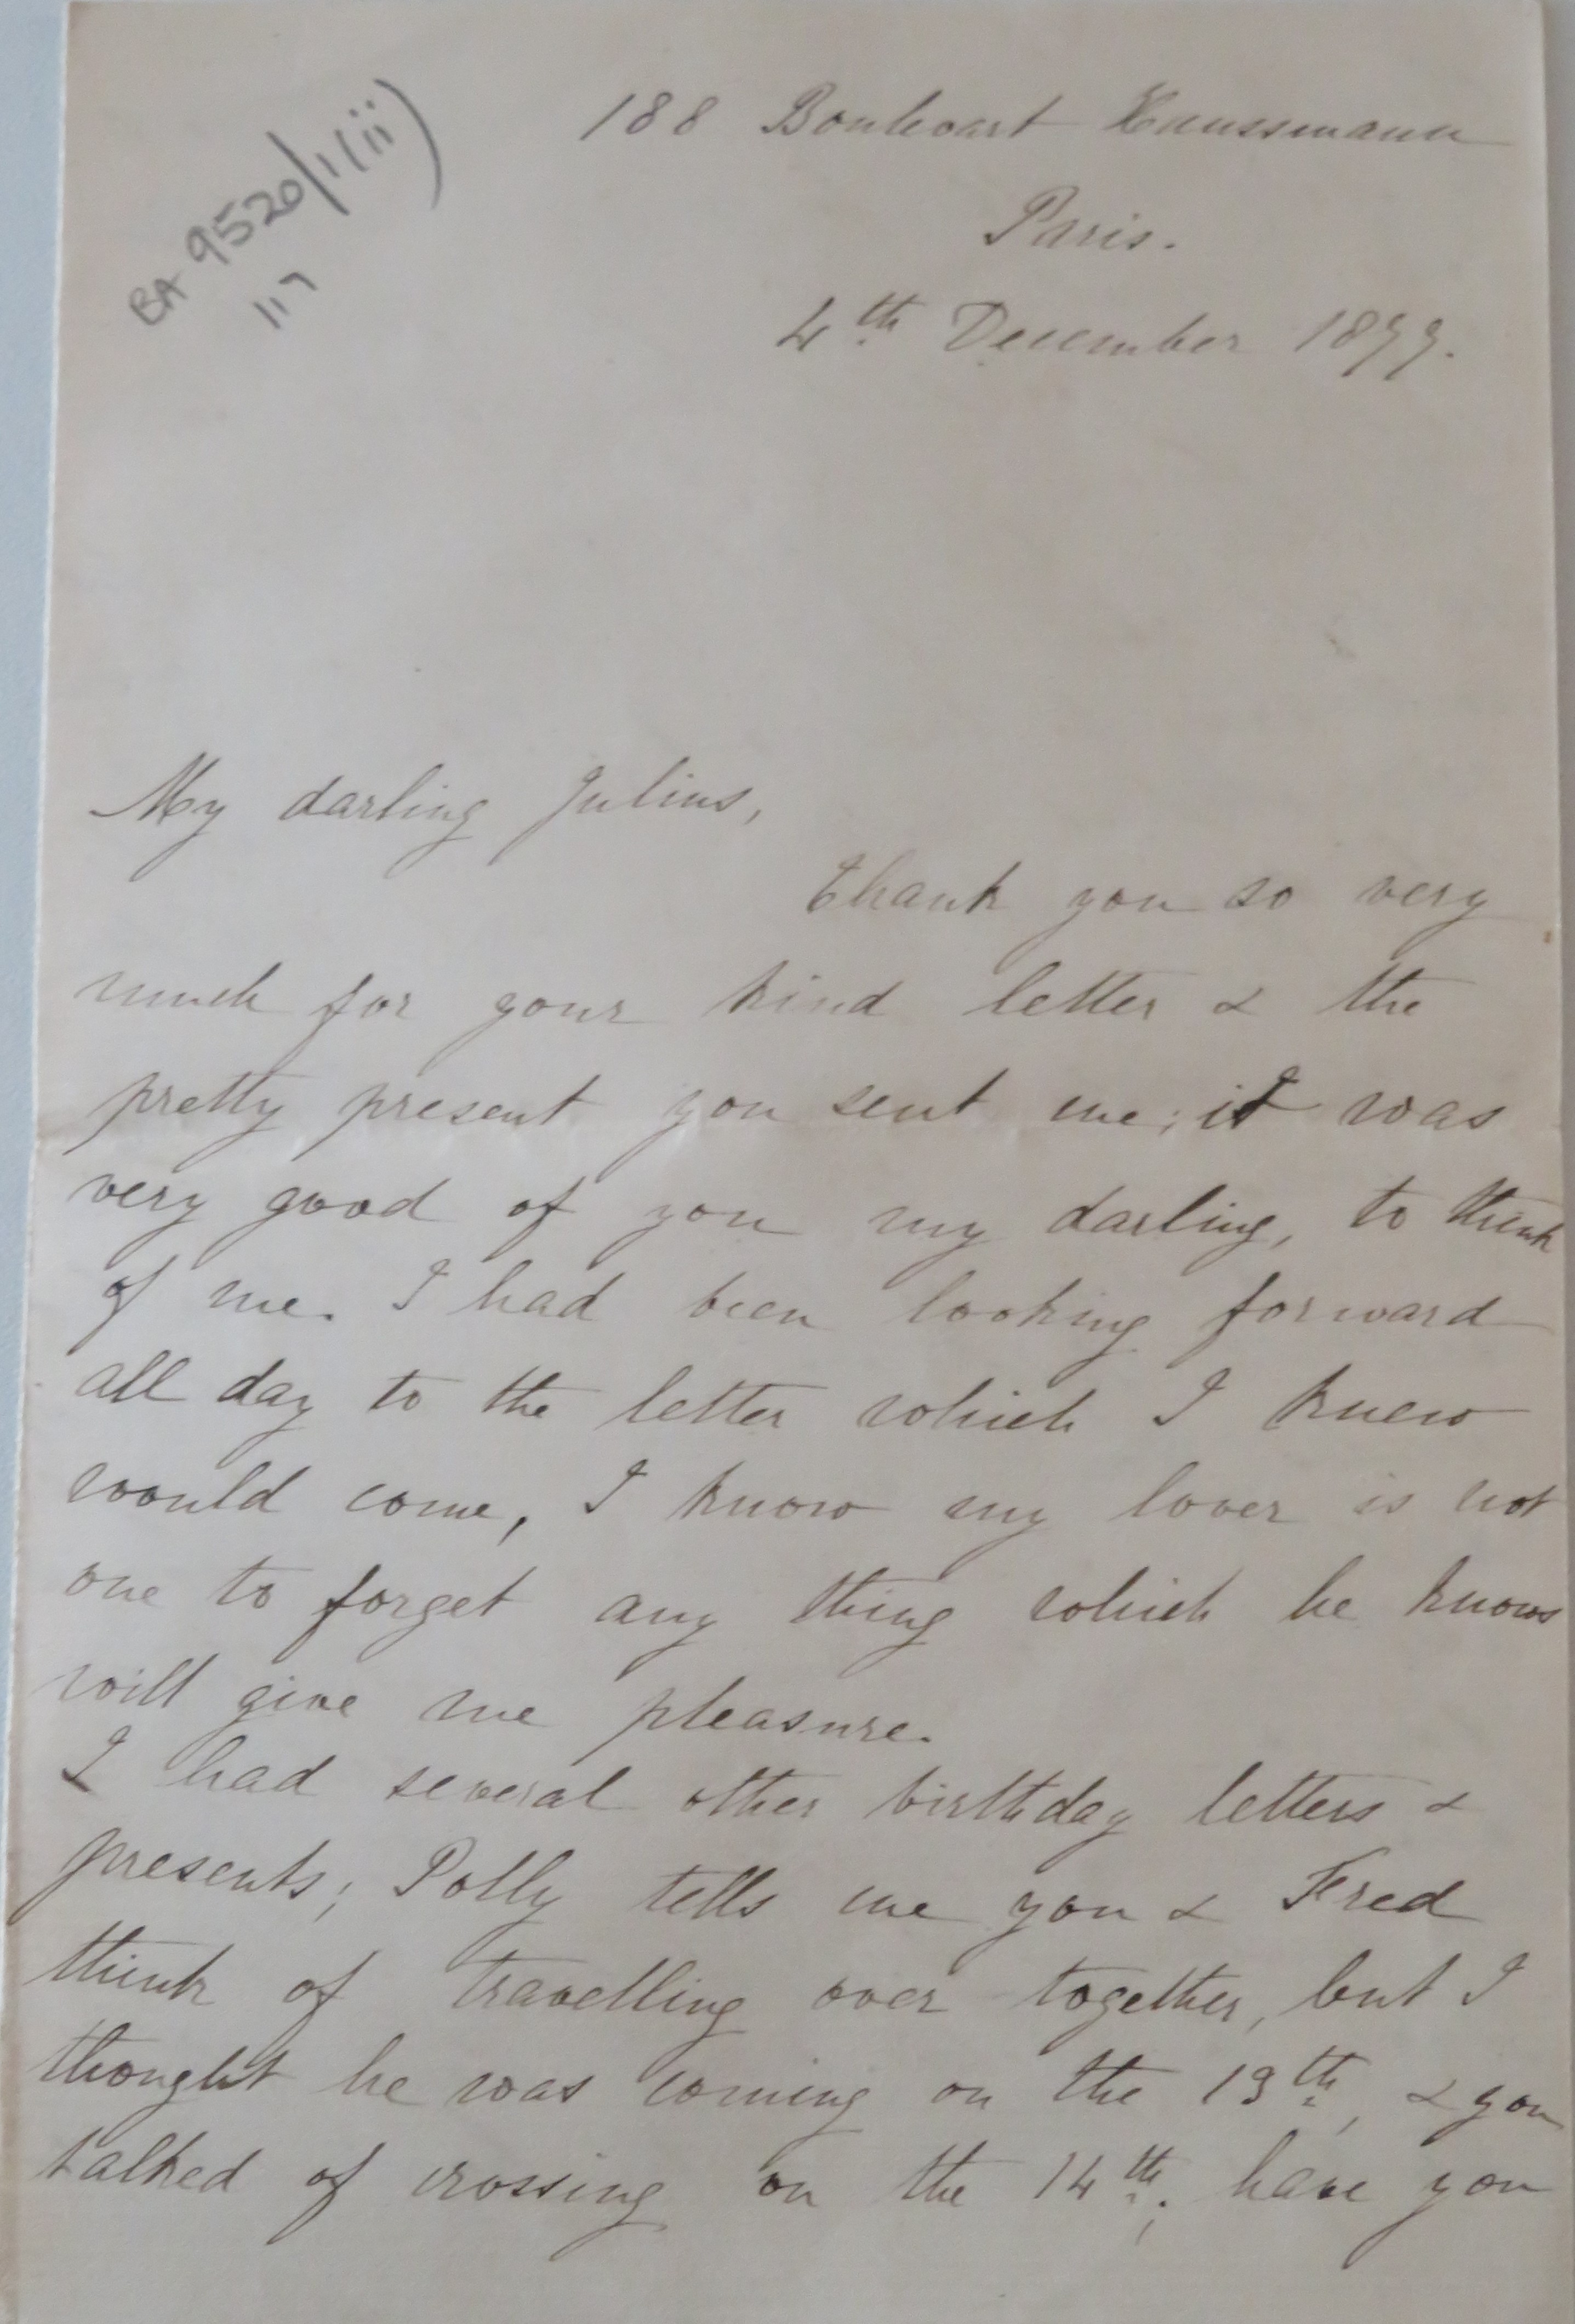 BA 9520/1(ii)
117
188 Boulevart Haussmann
Paris.
4th December 1877.
My darling Julius,
Thank you so very
much for your kind letter & the
pretty present you sent me; it was
very good of you my darling, to think
of me. I had been looking forward
all day to the letter which I knew
would come, I know my lover is not
one to forget any thing which he knows
will give me pleasure.
I had several other birthday letters &
presents; Polly tells me you & Fred
think of travelling over together, but I
thought he was coming on the 13th, & you
talked of crossing on the 14th; have you